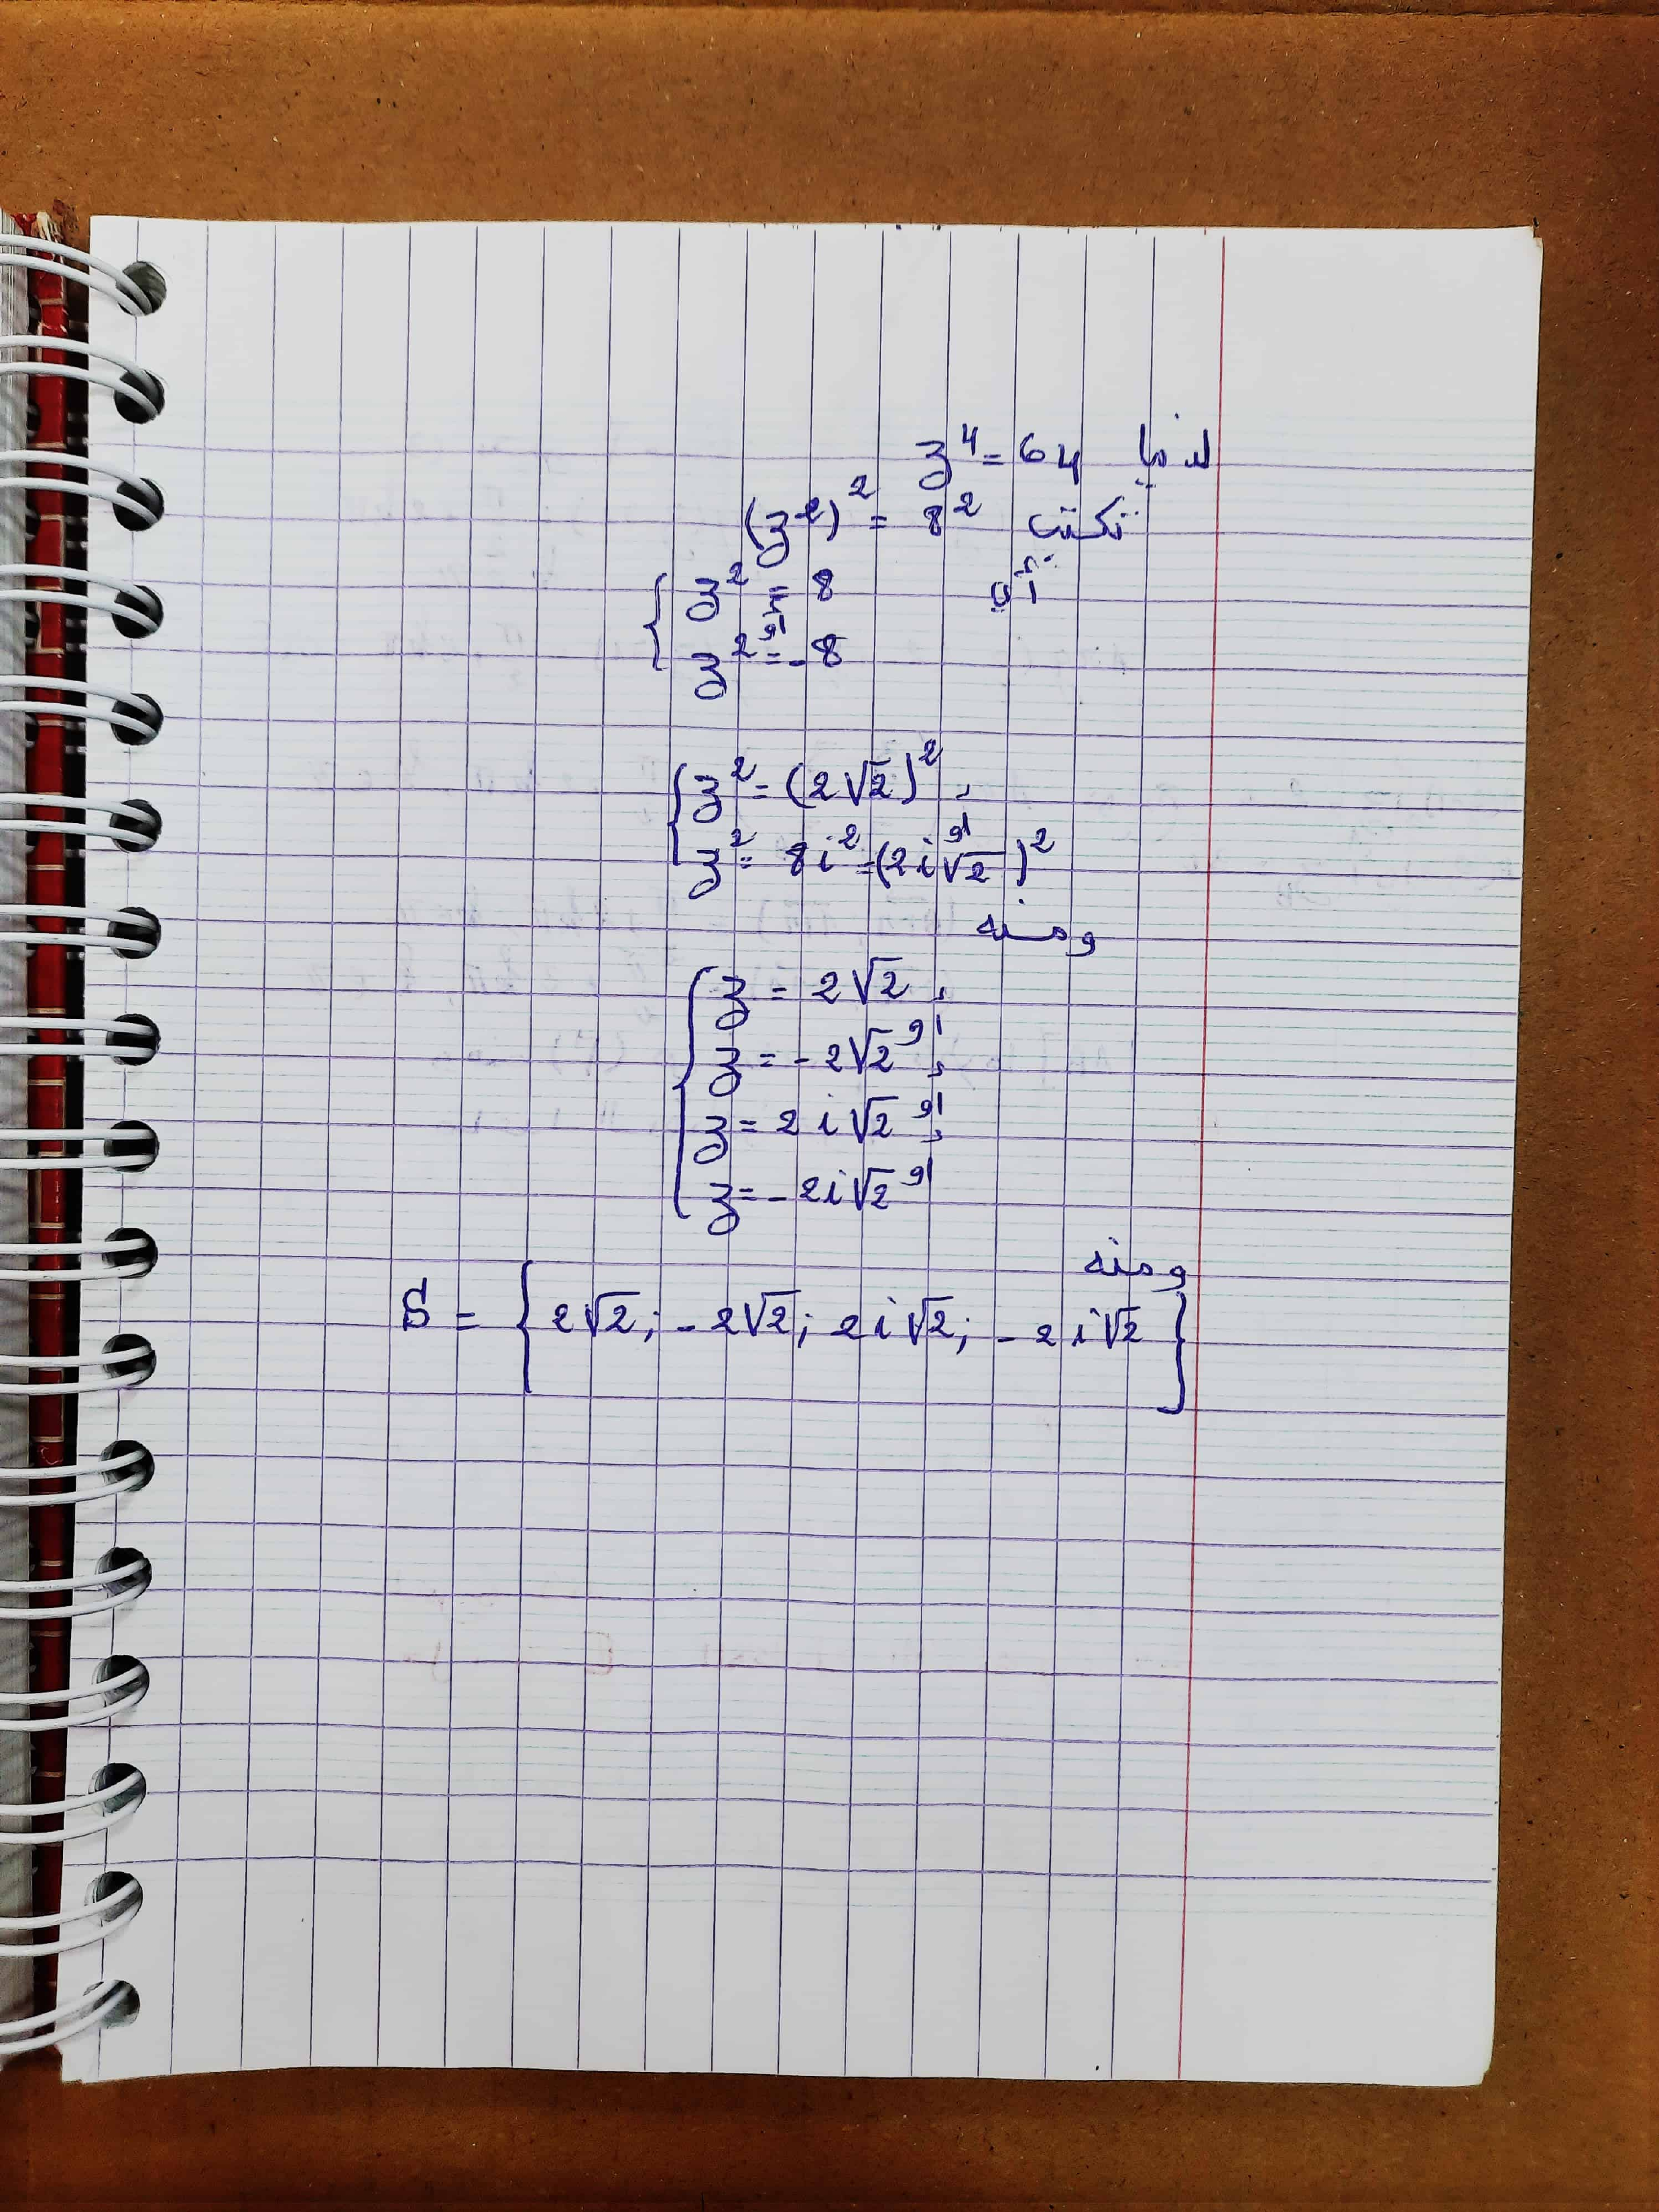 لدينا z⁴ = 64
تكتب (z²)² = 8²
أي
{ z² = 8
أو
z² = -8
{ z² = (2√2)² ,
أو
z² = 8i² = (2i√2)²
ومنه
{ z = 2√2 ,
أو
z = -2√2 ,
أو
z = 2i√2 ,
أو
z = -2i√2
ومنه
S = { 2√2 ; -2√2 ; 2i√2 ; -2i√2 }